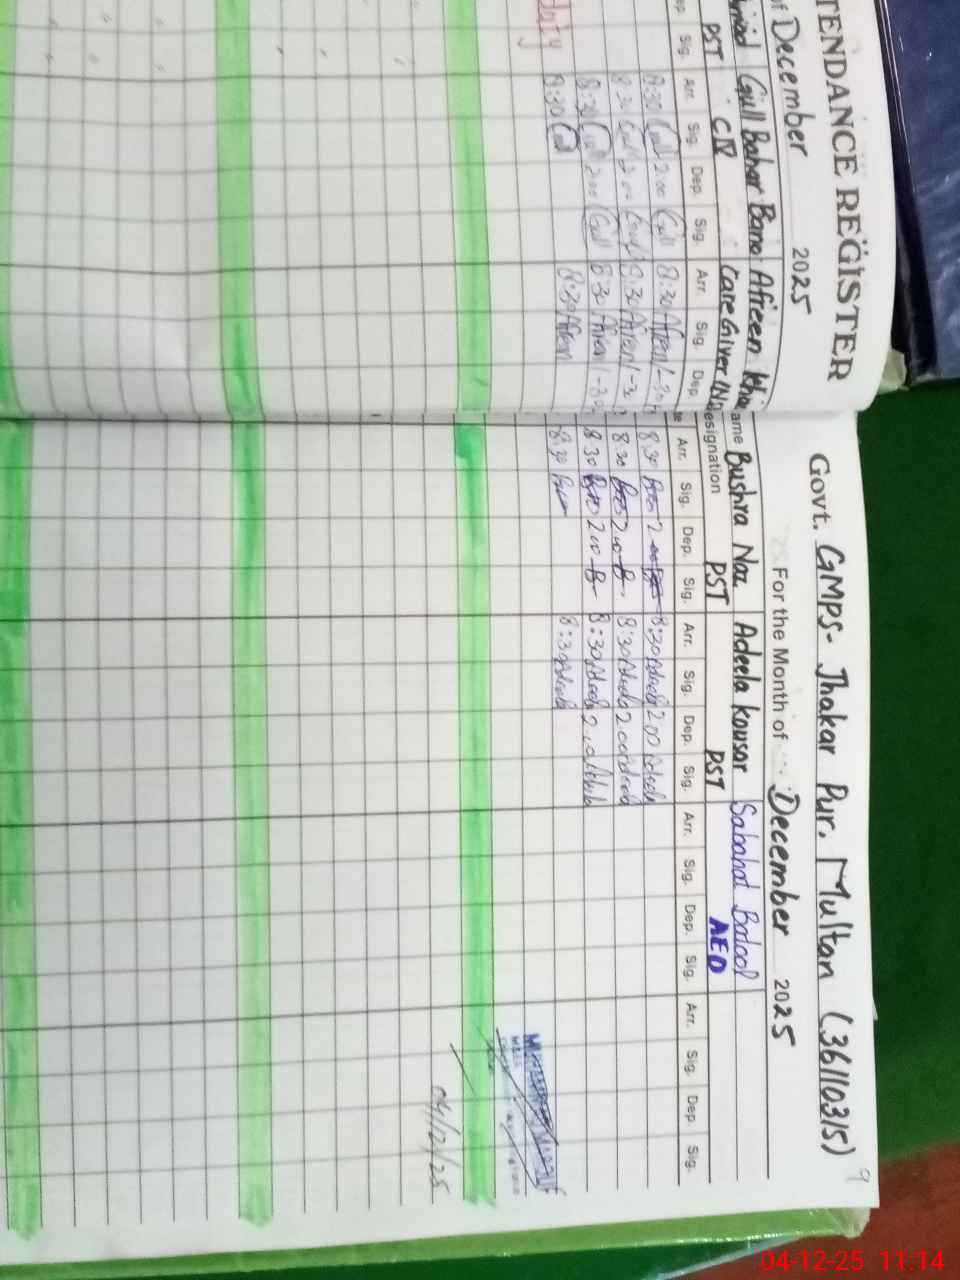 TENDANCE REGISTER
of December 2025
Gull Bahar Bano Afreen Khan
PST CIV Care Giver
ep. Sig. Arr. Sig. Dep. Sig. Arr. Sig. Dep.
8:30 Gull 2:00 Gull 8:30 Afreen
8:30 Gull 2:00 Gull 8:30 Afreen
8:30 Gull 2:00 Gull 8:30 Afreen
8:30 Gull 8:30 Afreen
duty
Govt. GMPS- Jhakar Pur. Multan (36110315)
9
For the Month of December 2025
ame Bushra Naz Adeela kousar Sabahat Batool
esignation PST PST AEO
te Arr. Sig. Dep. Sig. Arr. Sig. Dep. Sig. Arr. Sig. Dep. Sig. Arr. Sig. Dep. Sig.
8:30 2:00 8:30 Adeela 2:00 Adeela
8:30 2:00 8:30 Adeela 2:00 Adeela
8:30 2:00 8:30 Adeela 2:00 Adeela
8:30 8:30 Adeela
04/12/25
04-12-25 11:14